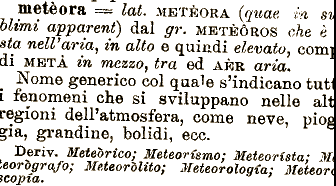 metèora = lat. METÈORA (quae in su
blimi apparent) dal gr. METEÔROS che è
sta nell'aria, in alto e quindi elevato, comp
di METÀ in mezzo, tra ed AÈR aria.
Nome generico col quale s'indicano tutt
i fenomeni che si sviluppano nelle alt
regioni dell'atmosfera, come neve, piog
gia, grandine, bolidi, ecc.
Deriv. Meteòrico; Meteorísmo; Meteorísta; M
teorògrafo; Meteoròlito; Meteorología; Meteoro
scopía.